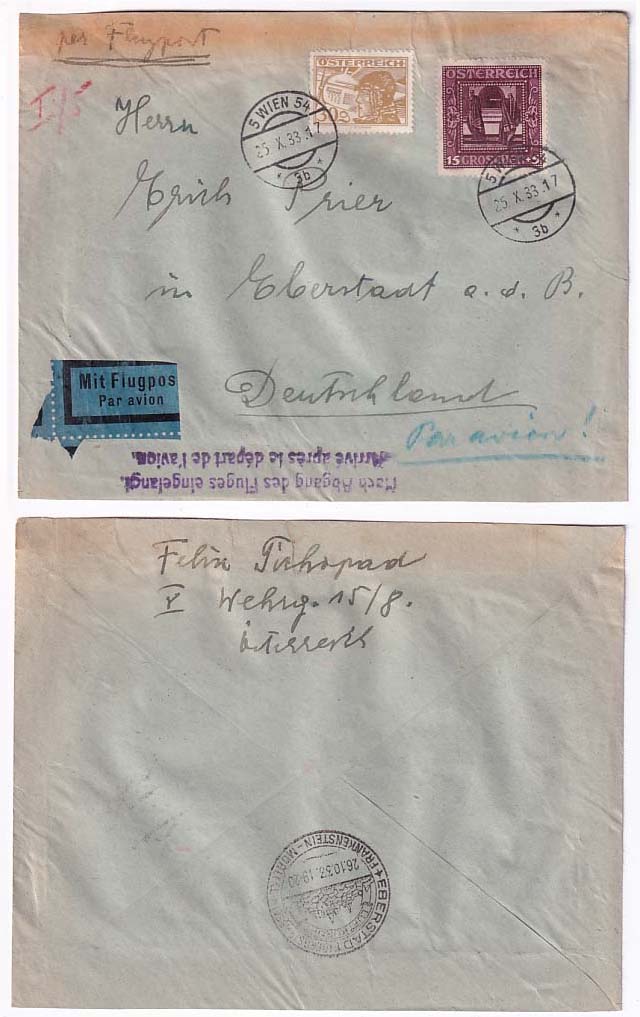 per Flugpost
Herrn
Erich Prier
in Eberstadt a. d. B.
Deutschland
Par avion!
ÖSTERREICH
ÖSTERREICH
15 GROSCHEN + 5
5 WIEN 54
25.X.33.17
* 3b *
25.X.33.17
* 3b *
Mit Flugpos
Par avion
Nach Abgang des Fluges eingelangt.
Arrivé après le départ de l'avion.
Felix Tichopad
V Wehrg. 15/8.
Österreich
EBERSTADT
FRANKENSTEIN
26.10.33.19-20